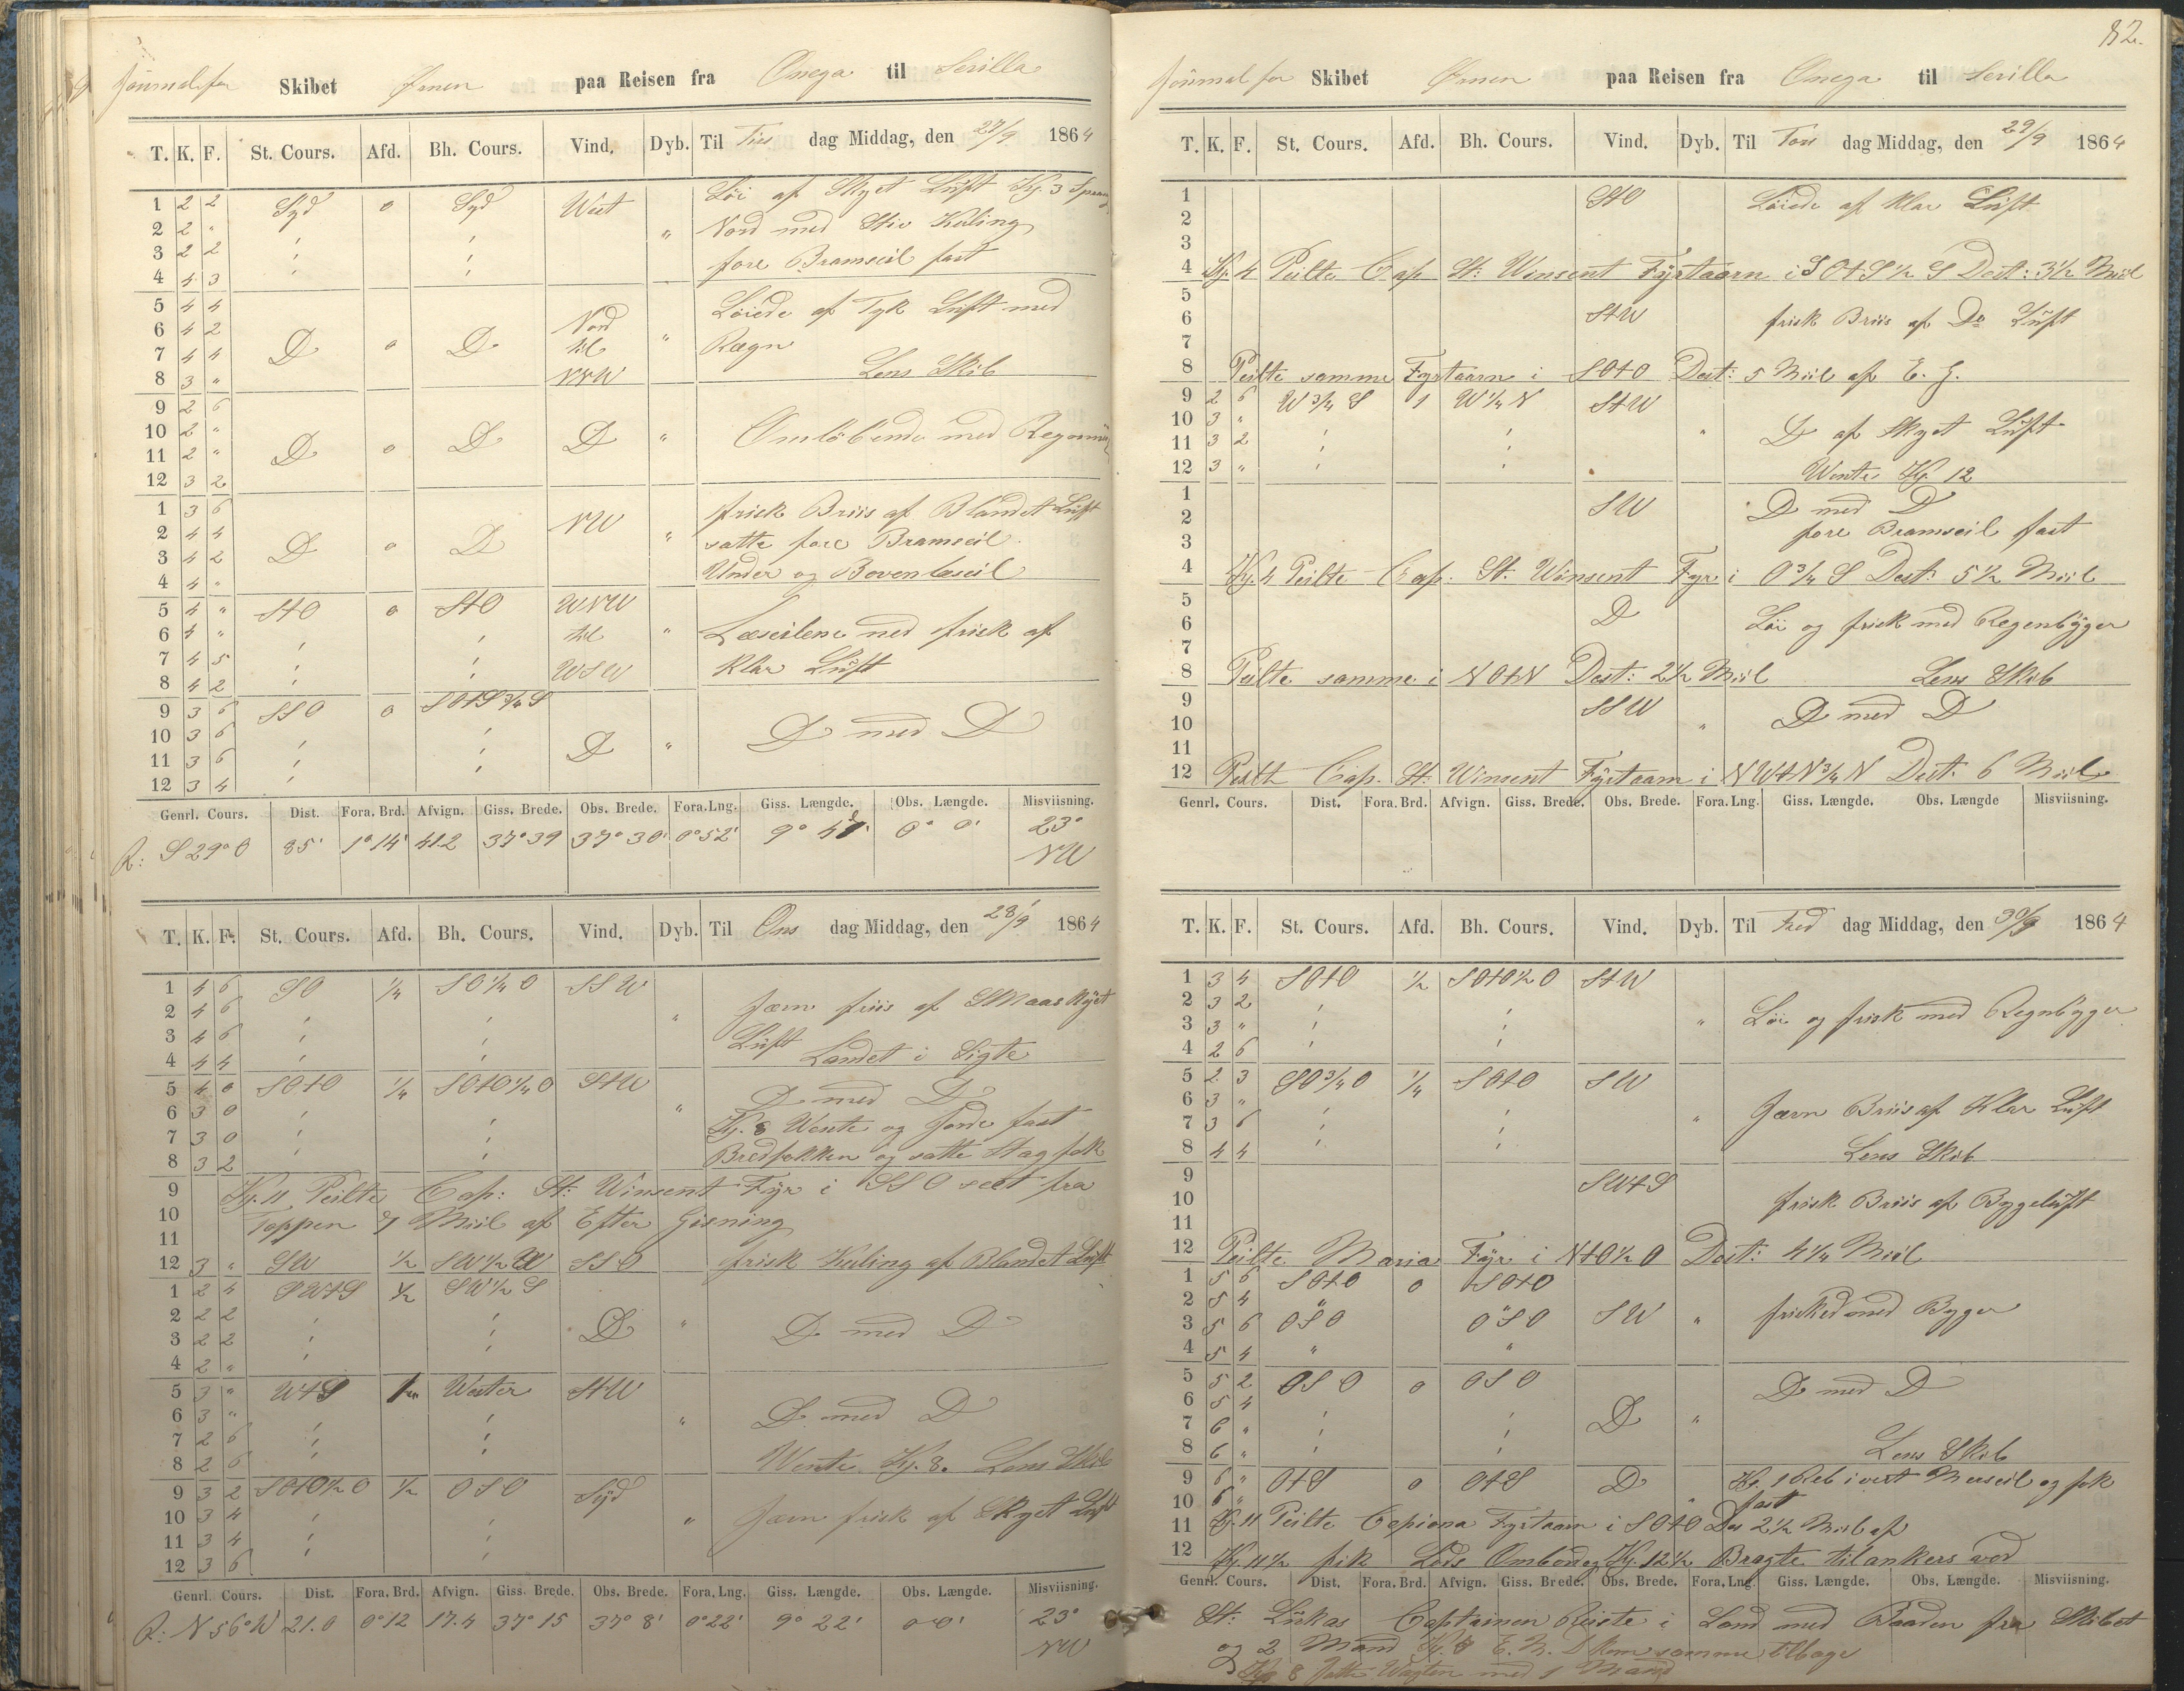 Journal for Skibet Ørnen paa Reisen fra Onega til Sevilla
T. K. F. St. Cours. Afd. Bh. Cours. Vind. Dyb. Til Tirs dag Middag, den 27/9 1864
1 2 2 Syd 0 Syd West Löi af Skyet Luft Kl. 3 Sprang
2 2 " " Nord med Stiv Kuling
3 2 2 fore Bramseil fast
4 4 3
5 4 4 Löiede af Tyk Luft med
6 4 2 D 0 D Nord til NNW " Rægn
7 4 4
8 3 " Lens Skib
9 2 6
10 2 " D 0 D D " Omløbende med Regn
11 2 "
12 3 2
1 3 6 NW frisk Briis af Blandet Luft
2 4 4 D 0 D " satte fore Bramseil
3 4 2 Under og Bovenlæseil
4 4 "
5 4 " StO 0 StO WNW
6 4 " til " Læseilene ned frisk af
7 4 5 WSW klar Luft
8 4 2
9 3 6 SSO 0 SOtS¾S
10 3 6 D " D med D
11 3 6
12 3 4
Genrl. Cours. Dist. Fora. Brd. Afvign. Giss. Brede. Obs. Brede. Fora. Lng. Giss. Længde. Obs. Længde. Misviisning.
R: S 29° O 85' 1° 14' 41.2 37° 39 37° 30' 0° 52' 9° 0° 0' 23° NW
T. K. F. St. Cours. Afd. Bh. Cours. Vind. Dyb. Til Ons dag Middag, den 28/9 1864
1 4 6 SO ¼ SO¼O SSW
2 4 6 " Jævn friis af Smaaskyet
3 4 6 Luft
4 4 4 Landet i Sigte
5 4 0 SOtO ¼ SOtO¼O StW D med D
6 3 0 " Kl. 8 Wente og Gjorde fast
7 3 0 Bredfokken og satte Stagfok
8 3 2
9 Kl. 11 Peilte Cap: St: Winsent Fÿr i SSO seet fra
10 Toppen 7 Miil af Efter Gisning
11
12 3 " SW ½ SW½W SSO frisk Kuling af Blandet Luft
1 2 4 SWtS ½ SW½S
2 2 2 D " D med D
3 2 2
4 2 "
5 3 " WtS 1 Wester StW
6 3 " " D med D
7 2 6
8 2 6 Wente Kl. 8. Lens Skib
9 3 2 SOtO½O ½ OSO Syd
10 3 4 " Jævn frisk af Skyet Luft
11 3 4
12 3 6
Genrl. Cours. Dist. Fora. Brd. Afvign. Giss. Brede. Obs. Brede. Fora. Lng. Giss. Længde. Obs. Længde. Misviisning.
R: N 56° W 21.0 0° 12 17.4 37° 15 37° 8' 0° 22' 9° 22' 0° 0' 23° NW
82.
Journal for Skibet Ørnen paa Reisen fra Onega til Sevilla
T. K. F. St. Cours. Afd. Bh. Cours. Vind. Dyb. Til Tors dag Middag, den 29/9 1864
1 StO Löiede af klar Luft
2
3
4 Kl. 4 Peilte Cap St: Winsent Fyrtaarn i SOtS½S Dest: 3½ Miil
5
6 StW frisk Briis af Do Luft
7
8 Peilte samme Fyrtaarn i SOtO Dest: 5 Miil af E. G.
9 2 6 W¾S 1 W¼N StW
10 3 " " D af Skyet Luft
11 3 2
12 3 " Wente Kl. 12
1 SW D med D
2 fore Bramseil fast
3
4 Kl. 4 Peilte Cap. St. Winsent Fyr i O¾S Dest: 5½ Miil
5
6 D Löi og frisk med Regenbÿger
7
8 Peilte samme i NOtN Dest: 2½ Miil Lens Skib
9 SSW D med D
10 "
11
12 Peilte Cap. St: Winsent Fyrtaarn i NWtN¾N Dest: 6 Miil
Genrl. Cours. Dist. Fora. Brd. Afvign. Giss. Brede. Obs. Brede. Fora. Lng. Giss. Længde. Obs. Længde Misviisning.
T. K. F. St. Cours. Afd. Bh. Cours. Vind. Dyb. Til Fred dag Middag, den 30/9 1864
1 3 4 SOtO ½ SOtO½O StW
2 3 2
3 3 " " Löi og frisk med Regnbÿger
4 2 6
5 2 3 SO¾O ¼ SOtO SW
6 3 "
7 3 6 " Jævn Briis af Klar Luft
8 4 4 Lens Skib
9 SWtS
10 frisk Briis af Bygeluft
11
12 Peilte Maria Fÿr i NtO½O Dest: 4¼ Miil
1 5 6 SOtO 0 SOtO
2 5 4 "
3 5 6 OSO OSO SW " frisked med Byger
4 5 4 " "
5 5 2 OSO 0 OSO D med D
6 5 4
7 6 " D "
8 6 " Lens Skib
9 6 " OtS 0 OtS D Kl. 1 Reb i vert Merseil og fok
10 6 " fast
11 Kl. 11 Peilte Cepiona Fyrtaarn i SOtO Des 2½ Miil af
12 Kl. 11½ fik Lods Ombord og Kl. 12½ Bragte tilankers ved
Genrl. Cours. Dist. Fora. Brd. Afvign. Giss. Brede. Obs. Brede. Fora. Lng. Giss. Længde. Obs. Længde. Misviisning.
St: Lukas Captainen Reiste i Land med Baaden fra Skibet
og 2 Mand Kl. 8 E. M. kom samme tilbage
Kl. 8 Satte Wagten med 1 Mand